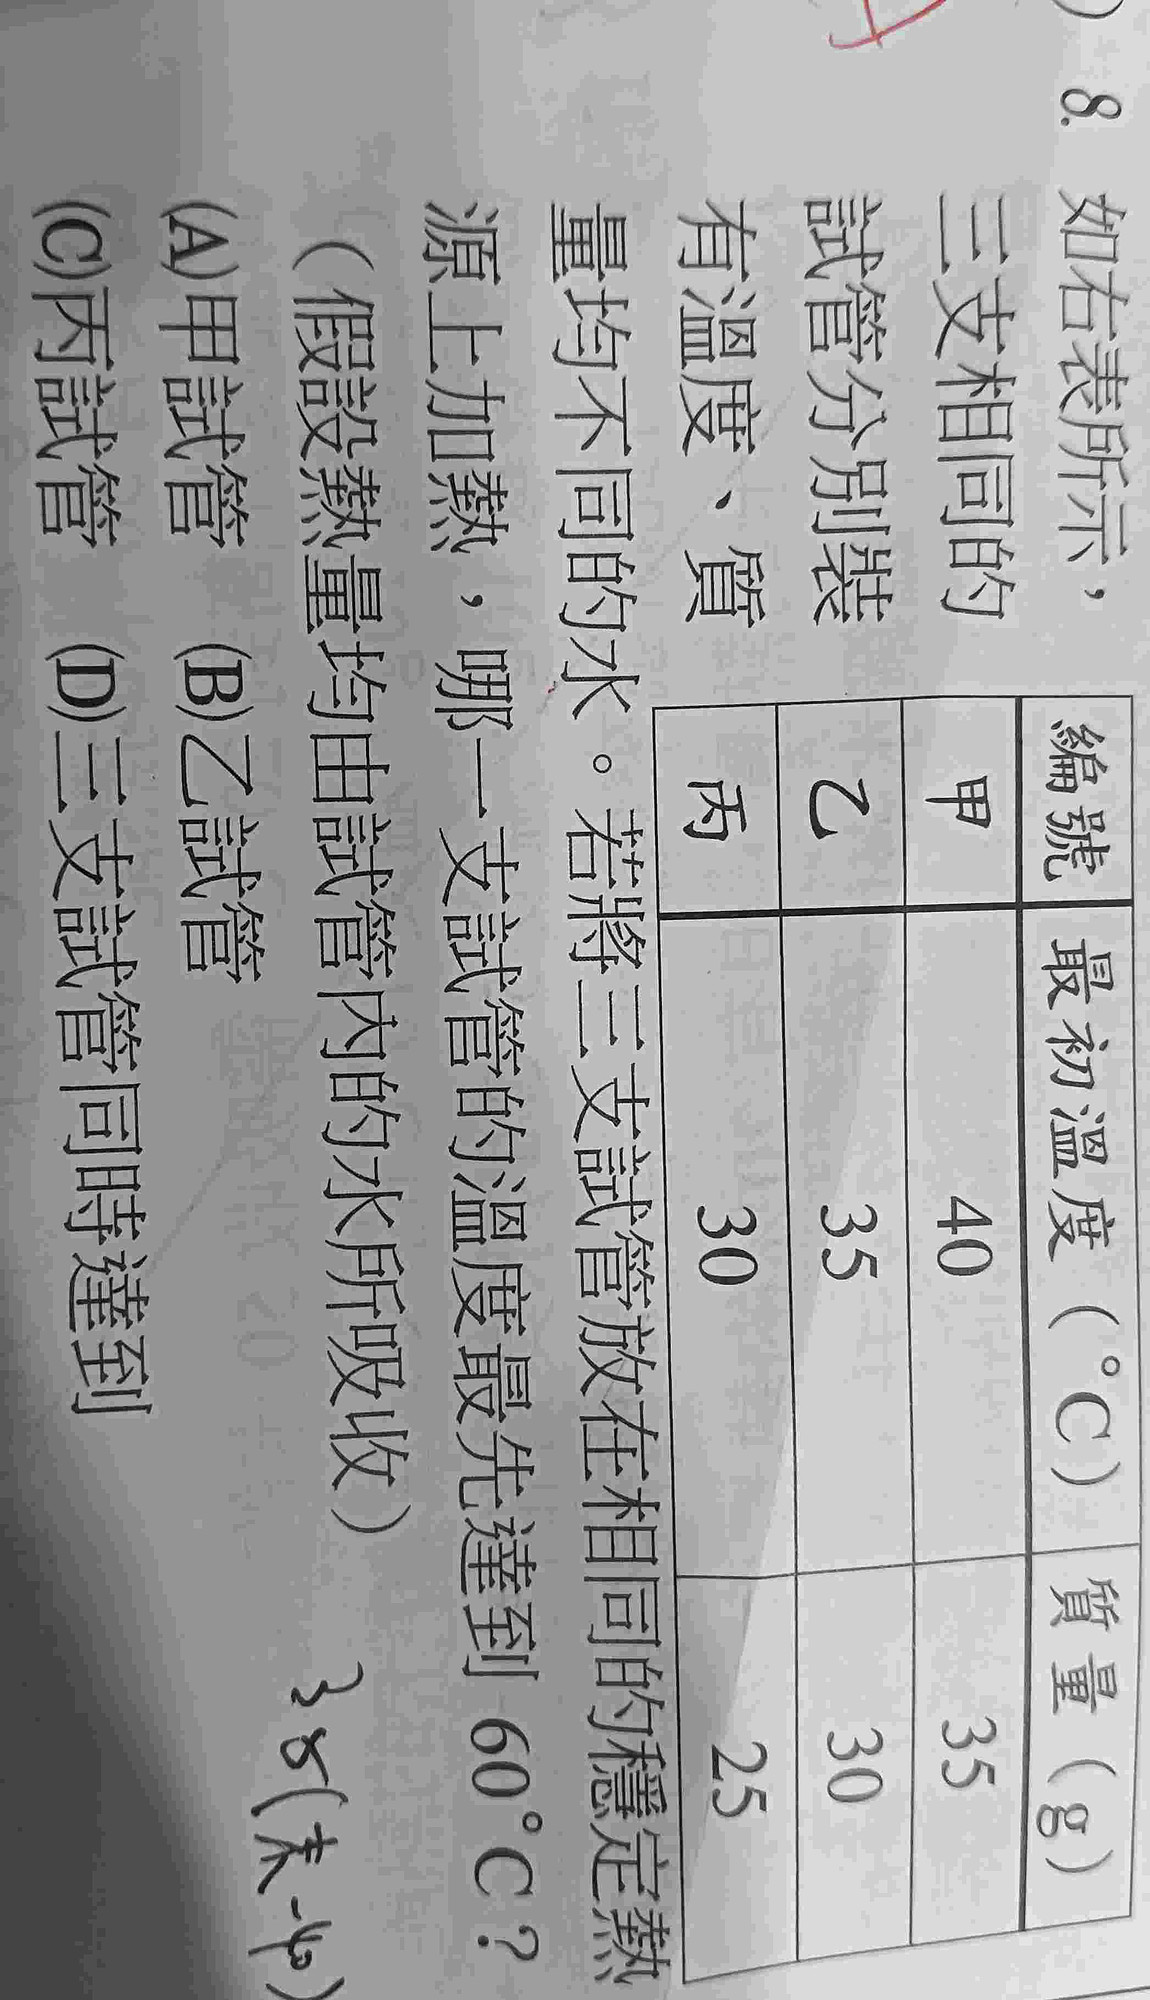 ) 8. 如右表所示，
三支相同的
試管分別裝
有溫度、質
量均不同的水。若將三支試管放在相同的穩定熱
源上加熱，哪一支試管的溫度最先達到 60°C？
（假設熱量均由試管內的水所吸收）
(A)甲試管 (B)乙試管
(C)丙試管 (D)三支試管同時達到
編號 最初溫度（°C） 質量（g）
甲 40 35
乙 35 30
丙 30 25
35(末-40)